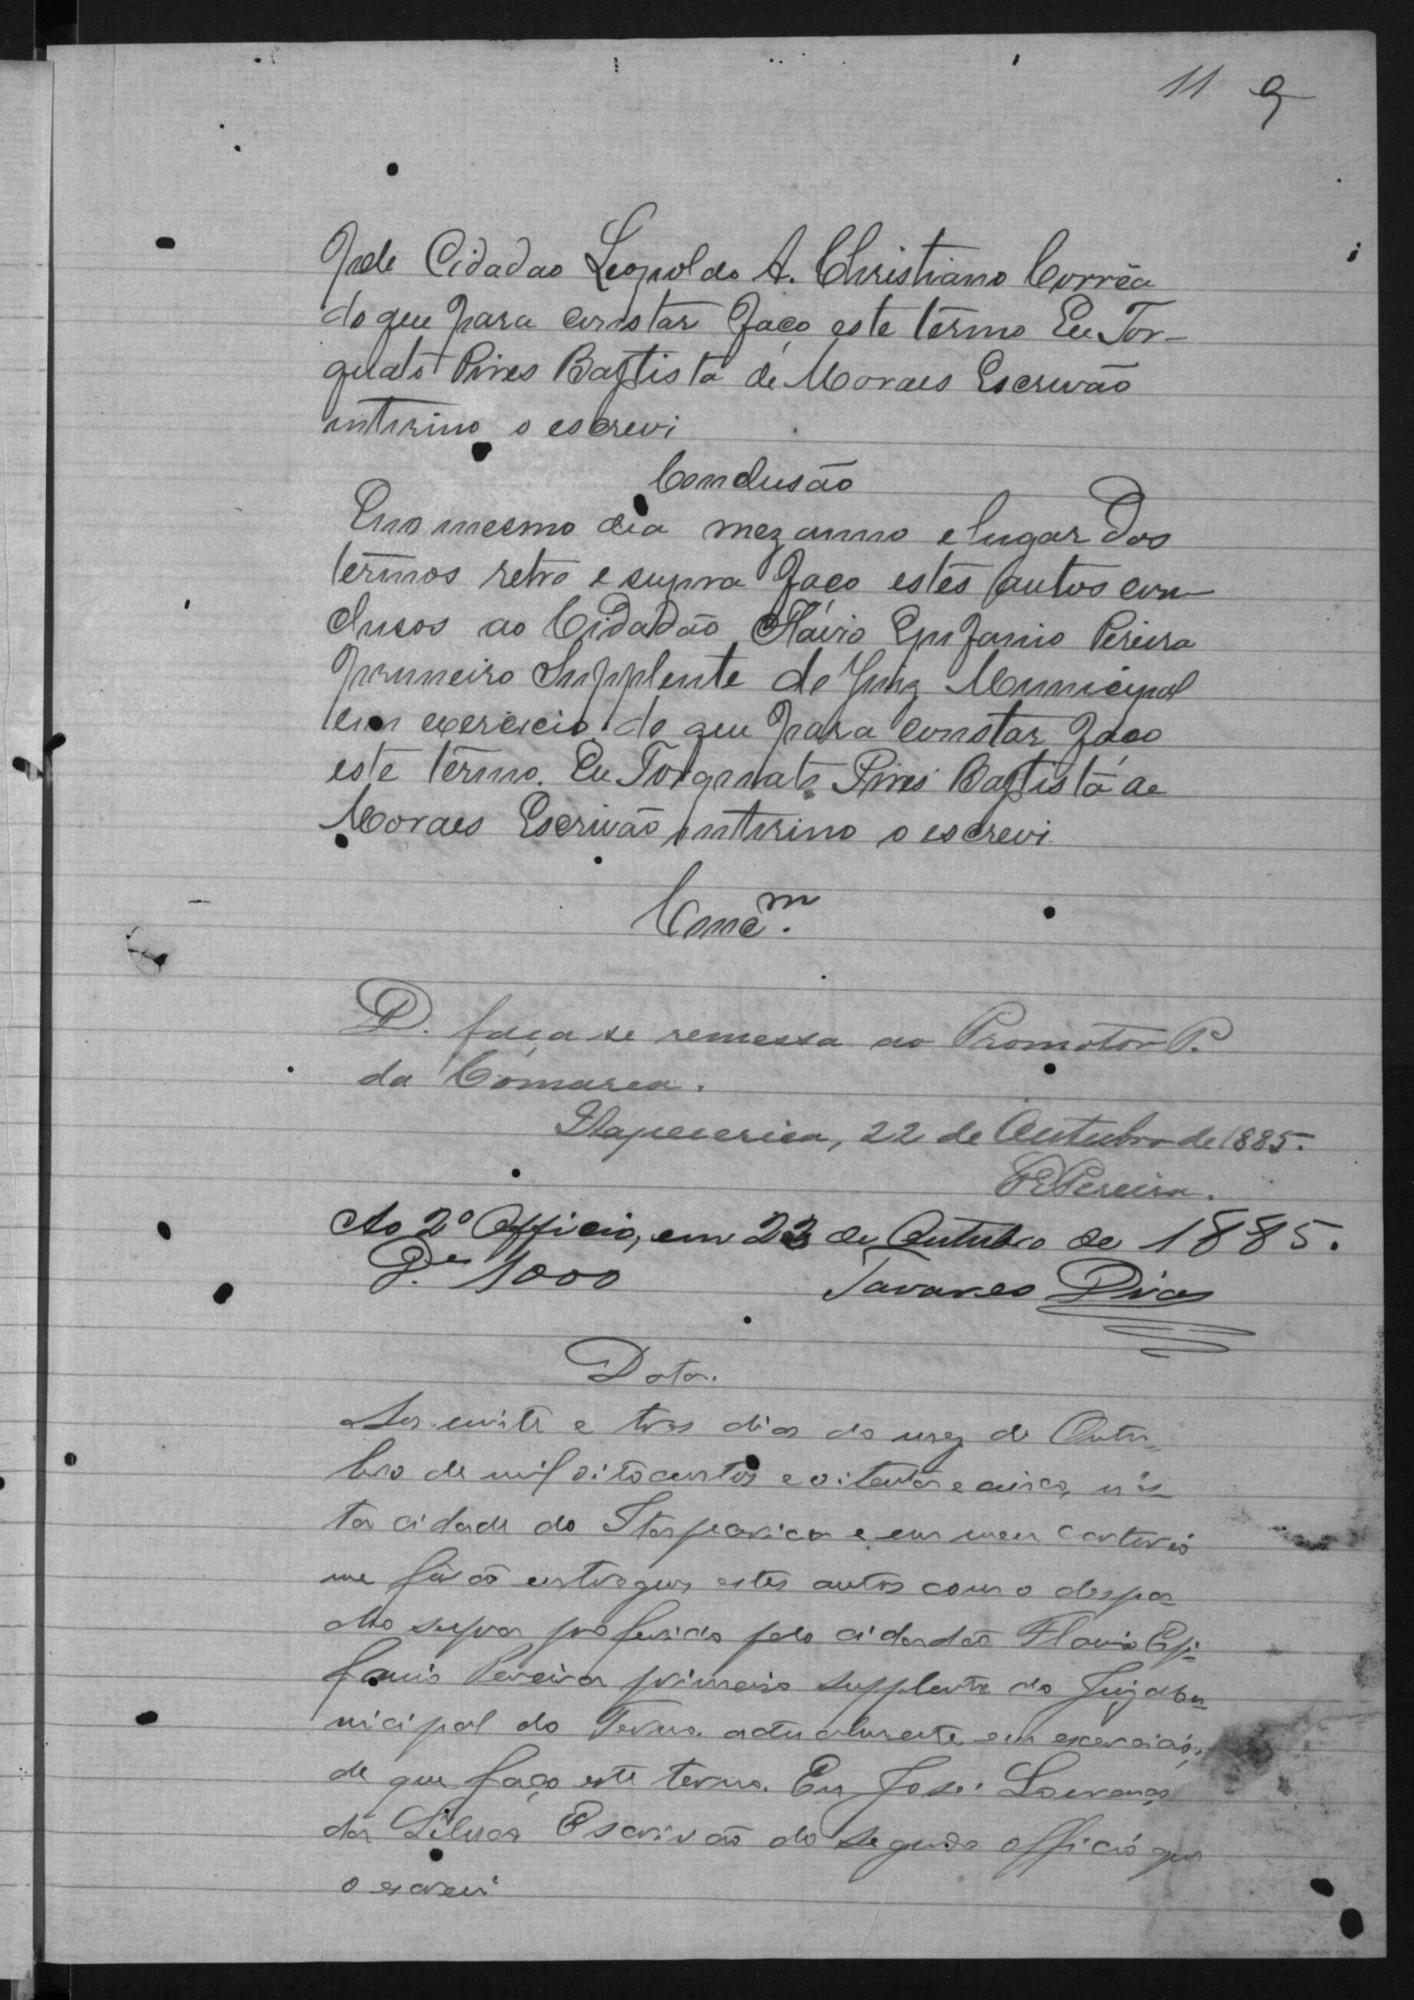 11 9
pelo Cidadao Leopoldo A. Christiano Corrêa
do que para constar faço este termo Eu Tor-
quato Pires Baptista de Moraes Escrivão
interino o escrevi
Conclusão
E no mesmo dia mez anno e lugar dos
termos retro e supra faço estes autos con-
clusos ao Cidadão Flávio Epifanio Pereira
primeiro Supplente do Juiz Municipal
em exercicio do que para constar faço
este termo. Eu Torquato Pires Baptista de
Moraes Escrivão interino o escrevi
Conc.m
D. faça se remessa ao Promotor P.
da Comarca.
Itapecerica, 22 de Outubro de 1885.
F E Pereira.
Ao 2º Officio, em 23 de Outubro de 1885.
D.es 1000 Tavares Dias
Data.
Aos vinte e tres dias do mez de Outu-
bro de mil oitocentos e oitenta e cinco, nes-
ta cidade de Itapecerica e em meu cartorio
me forão entregues estes autos com o despa
cho supra proferido pelo cidadão Flavio Epi-
fanio Pereira primeiro supplente do Juiz Mu-
nicipal do Termo actualmente em exercicio,
de que faço este termo. Eu José Lourenço
da Silva Escrivão do segundo officio que
o escrevi